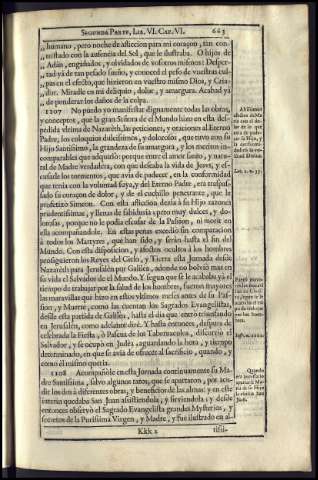 SEGUNDA PARTE, LIB. VI. CAP. VI. 663
„ humano, pero noche de afliccion para mi coraçon, tan con-
„ mistado con la ausencia del Sol, que le ilustraba. O hijos de
„ Adàn, engañados, y olvidados de vosotros mismos! Desper-
„ tad yà de tan pesado sueño, y conoced el peso de vuestras cul-
„ pas en el efecto, que hizieron en vuestro mismo Dios, y Cria-
„ dor. Miradle en mi deliquio, dolor, y amargura. Acabad yà
„ de ponderar los daños de la culpa.
1107 No puedo yo manifestar dignamente todas las obras,
y conceptos, que la gran Señora de el Mundo hizo en esta des-
pedida vltima de Nazareth, las peticiones, y oraciones al Eterno
Padre, los coloquios dulcissimos, y dolorosos, que tuvo con su
Hijo Santissimo, la grandeza de su amargura, y los meritos in-
comparables que adquiriò: porque entre el amor santo, y natu-
ral de Madre verdadera, con que deseaba la vida de Jesvs, y es-
cusarle los tormentos, que avia de padecer, en la conformidad
que tenia con la voluntad suya, y del Eterno Padre, era traspas-
sado su coraçon de dolor, y de el cuchillo penetrante, que le
profetizò Simeon. Con esta afliccion dezia à su Hijo razones
prudentissimas, y llenas de sabiduria, pero muy dulces, y do-
lorosas, porque no le podia escusar de la Passion, ni morir en
ella acompañandole. En estas penas excediò sin comparacion
à todos los Martyres, que han sido, y seràn hasta el fin del
Mundo. Con esta disposicion, y afectos ocultos à los hombres
prosiguieron los Reyes del Cielo, y Tierra esta Jornada desde
Nazareth para Jerusalèn por Galilea, adonde no bolviò mas en
su vida el Salvador de el Mundo. Y segun que se le acababa yà el
tiempo de trabajar por la salud de los hombres, fueron mayores
las maravillas que hizo en estos vltimos meses antes de su Pas-
sion, y Muerte, como las cuentan los Sagrados Evangelistas,
desde esta partida de Galilea, hasta el dia que entrò triunfando
en Jerusalèn, como adelante dirè. Y hasta entonces, despues de
celebrada la Fiesta, ò Pascua de los Tabernaculos, discurriò el
Salvador, y se ocupò en Judèa, aguardando la hora, y tiempo
determinado, en que se avia de ofrecer al sacrificio, quando, y
como èl mismo queria.
1108 Acompañòle en esta Jornada continuamente su Ma-
dre Santissima, salvo algunos ratos, que se apartaron, por acu-
dir los dos à diferentes obras, y beneficios de las almas; y en este
interin quedaba San Juan assistiendola, y sirviendola; y desde
entonces observò el Sagrado Evangelista grandes Mysterios, y
secretos de la Purissima Virgen, y Madre, y fue ilustrado en al-
Kkk 2